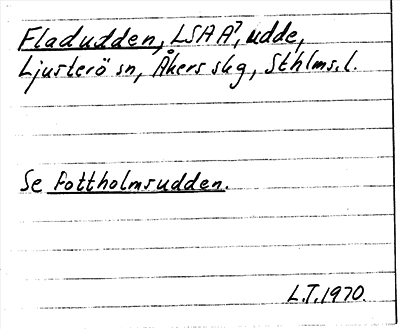 Fladudden, LSA A⁷, udde,
Ljusterö sn, Åkers skg, Sthlms. l.
Se Fottholmsudden.
L.T. 1970.